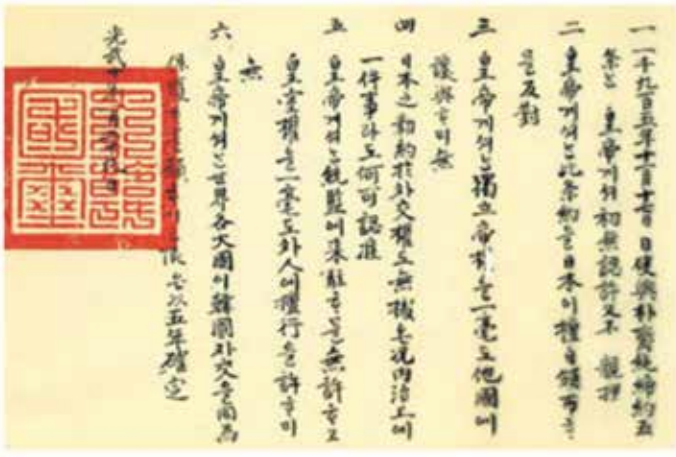 一 一千九百五年十一月十七日 日使與朴齊純締約五
條는 皇帝게셔 初無認許又不 親押
二 皇帝게셔는 此条約을 日本이 擅自頒布ᄒᆞ
믈 反對
三 皇帝게셔는 獨立帝权을 一毫도 他國에
讓與ᄒᆞ미 無
四 日本之勒約於外交權도 無據온 况內治上에
一件事라도 何可認准
五 皇帝게셔는 統監에 來駐ᄒᆞ믈 無許ᄒᆞ고
皇室權을 一毫도 外人에 擅行을 許ᄒᆞ미
無
六 皇帝게셔는 世界各大國이 韓國外交을 同爲
保護 願ᄒᆞ시 限은 以五年確定
光武十年一月 日